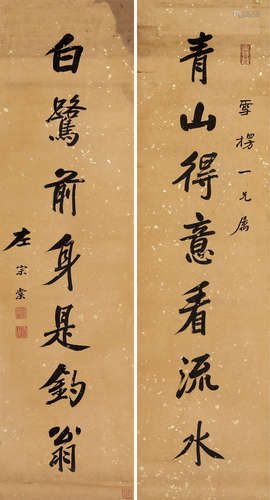 青山得意看流水
雪樗一兄属
白鷺前身是釣翁
左宗棠